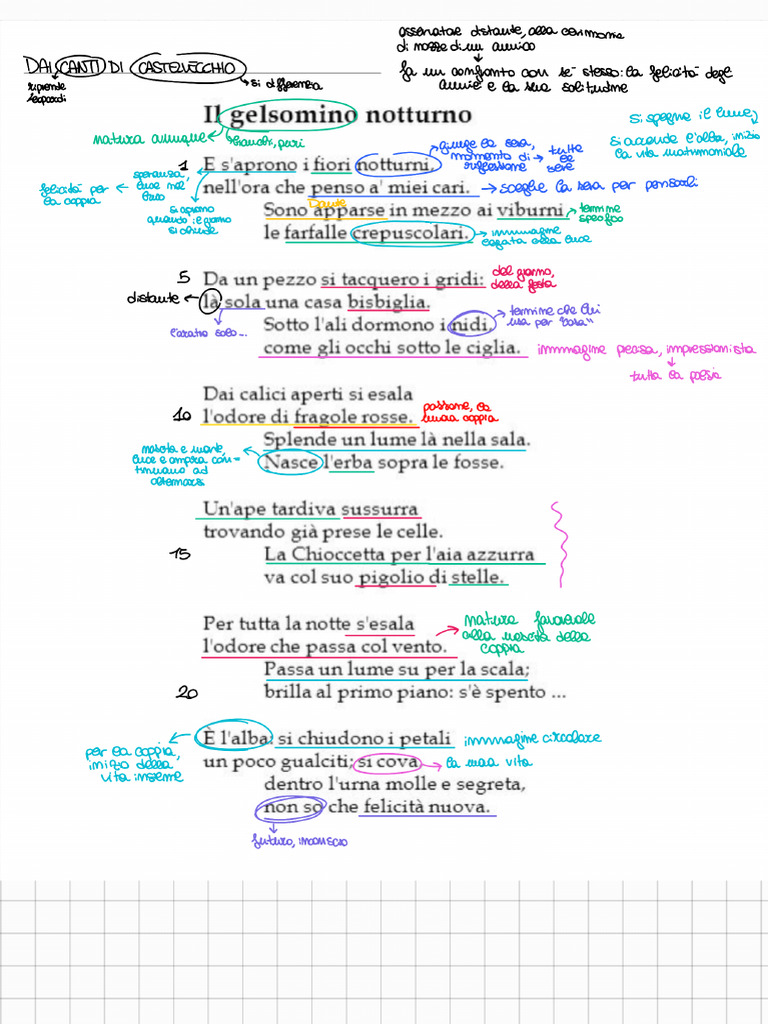 osservatore distante, alla cerimonia
di nozze di un amico
fa un confronto con se stesso: la felicità degli
amici e la sua solitudine
DAI CANTI DI CASTELVECCHIO
riprende
Leopardi
si differenzia
Il gelsomino notturno
natura ovunque
bianchi, puri
si spegne il lume,
si accende l'alba, inizio
la vita matrimoniale
giunge la sera,
momento di
riflessione
tutte
le
sere
1 E s'aprono i fiori notturni,
nell'ora che penso a' miei cari.
sceglie la sera per pensarli
speranza,
luce nel
buio
felicità per
la coppia
si aprono
quando il giorno
si chiude
Dante
Sono apparse in mezzo ai viburni
termine
specifico
le farfalle crepuscolari.
immagine
legata alla luce
5 Da un pezzo si tacquero i gridi:
del giorno,
della festa
distante
là sola una casa bisbiglia.
l'aratro solo...
Sotto l'ali dormono i nidi,
termine che lui
usa per "casa"
come gli occhi sotto le ciglia.
immagine pensa, impressionista
tutta la poesia
Dai calici aperti si esala
10 l'odore di fragole rosse.
passione, la
nuova coppia
Splende un lume là nella sala.
nascita e morte,
luce e ombra con-
tinuano ad
alternarsi
Nasce l'erba sopra le fosse.
Un'ape tardiva sussurra
trovando già prese le celle.
15 La Chioccetta per l'aia azzurra
va col suo pigolio di stelle.
Per tutta la notte s'esala
l'odore che passa col vento.
natura favorevole
alla nascita della
coppia
Passa un lume su per la scala;
20 brilla al primo piano: s'è spento ...
È l'alba: si chiudono i petali
immagine circolare
per la coppia,
inizio della
vita insieme
un poco gualciti; si cova
la nuova vita
dentro l'urna molle e segreta,
non so che felicità nuova.
futuro, incerto